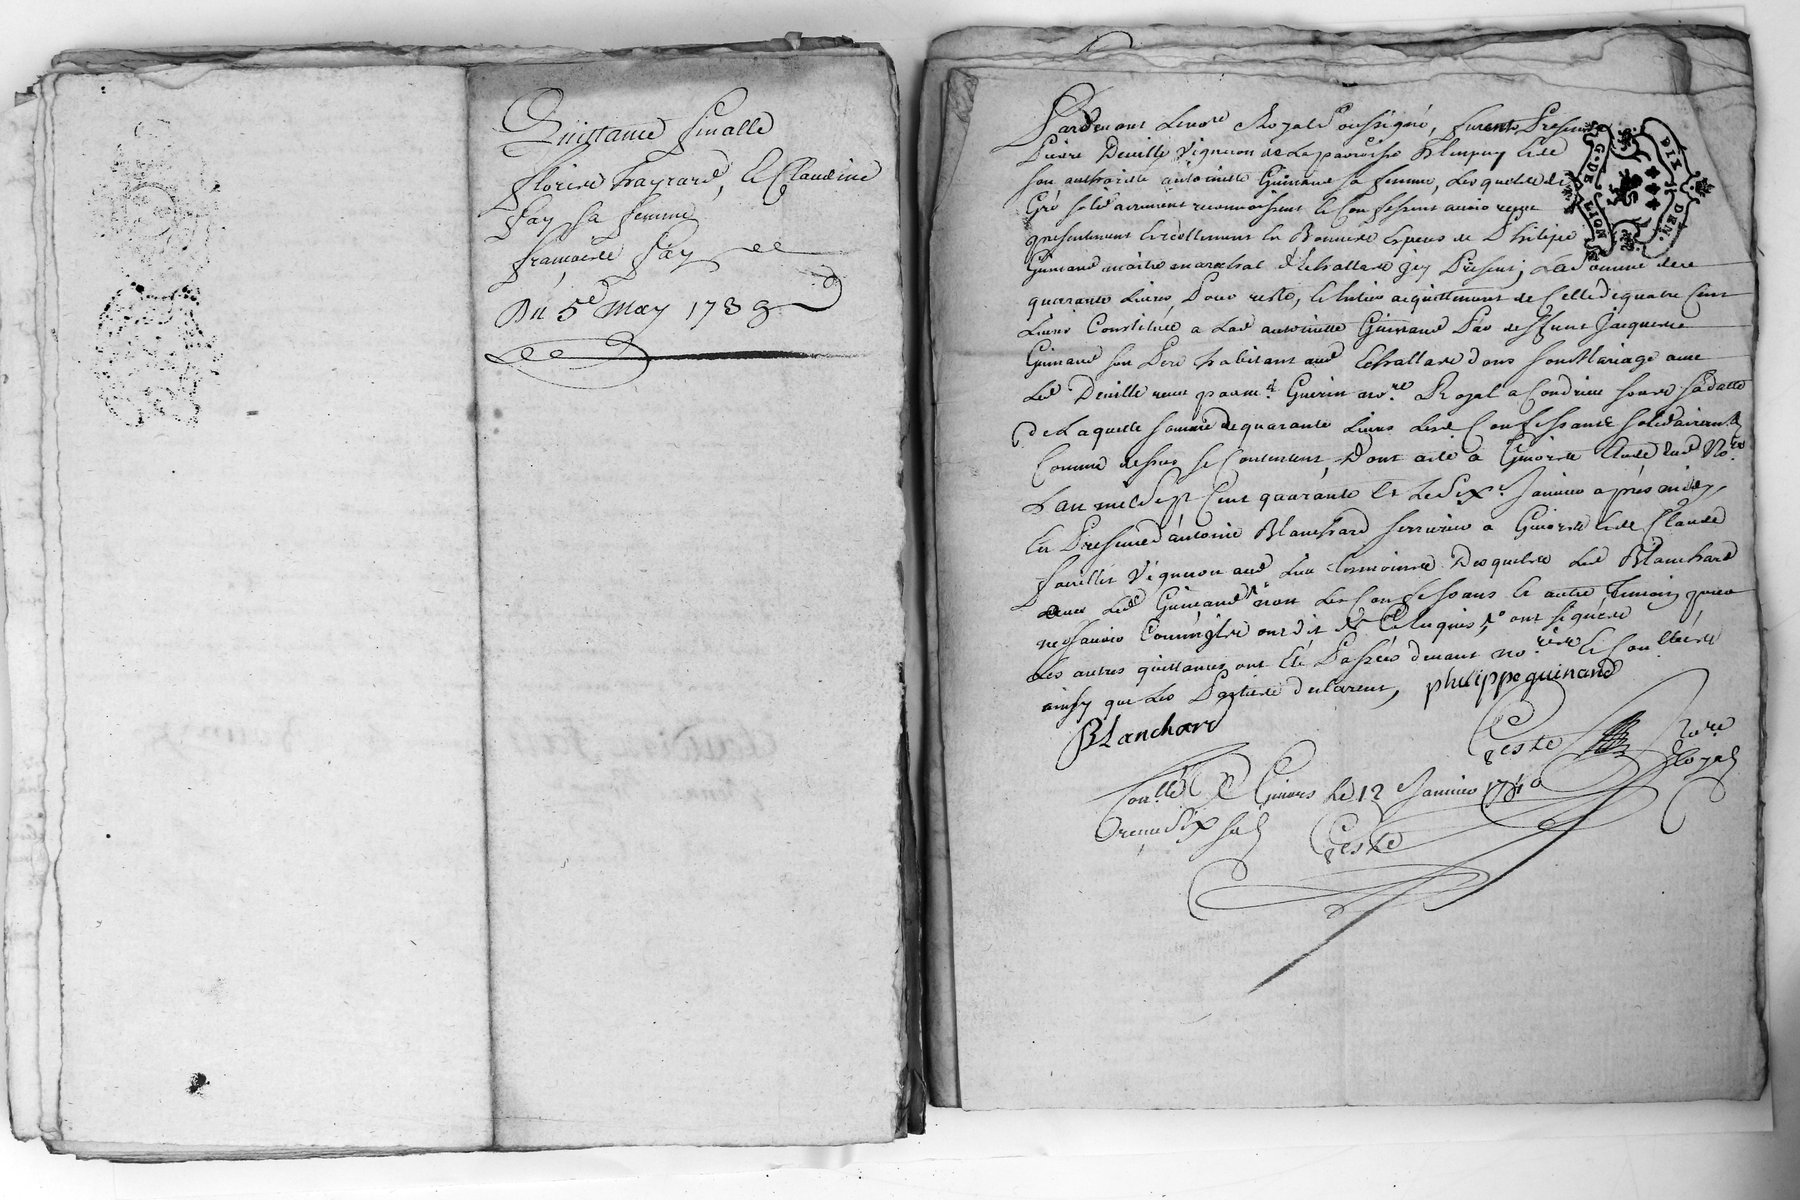 Quittance finalle
florise hayrard, & Claudine
fay sa femme
françoise fay
Du 5e May 1738
Pardevant Le nore Royal soussigné, furent Presents
Pierre Deville Vigneron de La parroisse D'Ampuy & de
son authorité antoinette Guinand sa femme, Lesquels de
Gré solidairement reconnoissent & Confessent avoir reçu
presentement & reellement En Bonnes Especes de Philippe
Guinand maitre marechal d'Echallas icy Present, La somme de
quarante Livres, Pour reste, & Entier acquittement de Celle de quatre Cent
Livres Constituée a Lad antoinette Guinand Par deffunt Jacques
Guinand son Pere habitant aud Echallas dans son Mariage avec
Led Deville reçu par me Guerin nore Royal a Condrieu sous sa datte
De Laquelle somme de quarante Livres Lesd Confessants solidairement
Comme dessus se Contentent, Dont acte a Givors Etude dud Nore
L'an mil Sept Cent quarante & Le Six Janvier après midy,
En Presence d'antoine Blanchard serrurier a Givors & de Claude
Vigneron aud Lieu temoins Desquels Led Blanchard
avec Led Guinand non Les Confessans & autre Temoin pour
ne sçavoir Comme ils ont dit de Ce Enquis, ont signé
Les autres quittances ont Eté Passées devant nores & Controllées
ainsy que Les Parties declarent, philippe guinand
Blanchard
Geste
Nore
Royal
G. DE LION
DIX DEN.
Conllé a Givors Le 12 Janvier 1740
Reçu Six sols
Geste